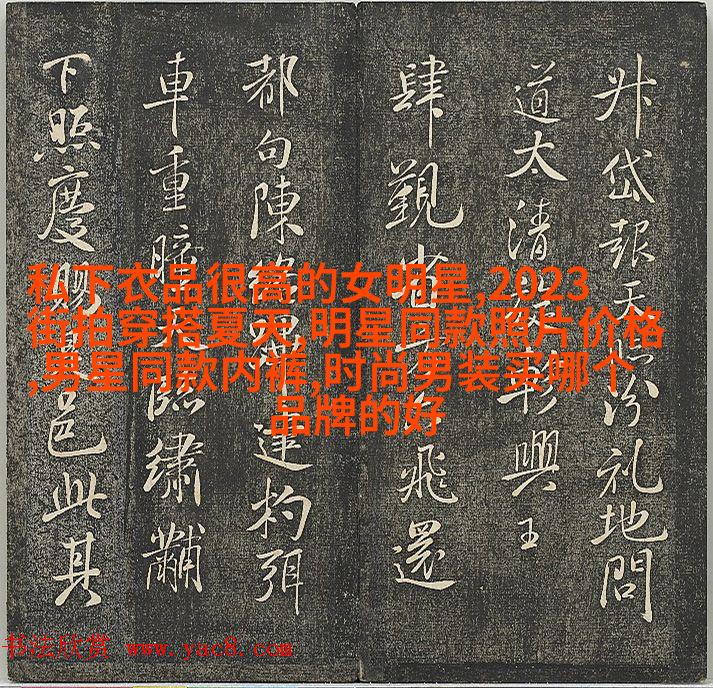 升岱報天汾礼地問
道太清興王
肆覲飛還
都句陳杓弭
車重臨繡黼
下照慶賜邑此其
私下衣品很高的女明星,2023
街拍穿搭夏天,明星同款照片价格
,男星同款内裤,时尚男装买哪个
品牌的好
书法欣赏 www.yac8.com